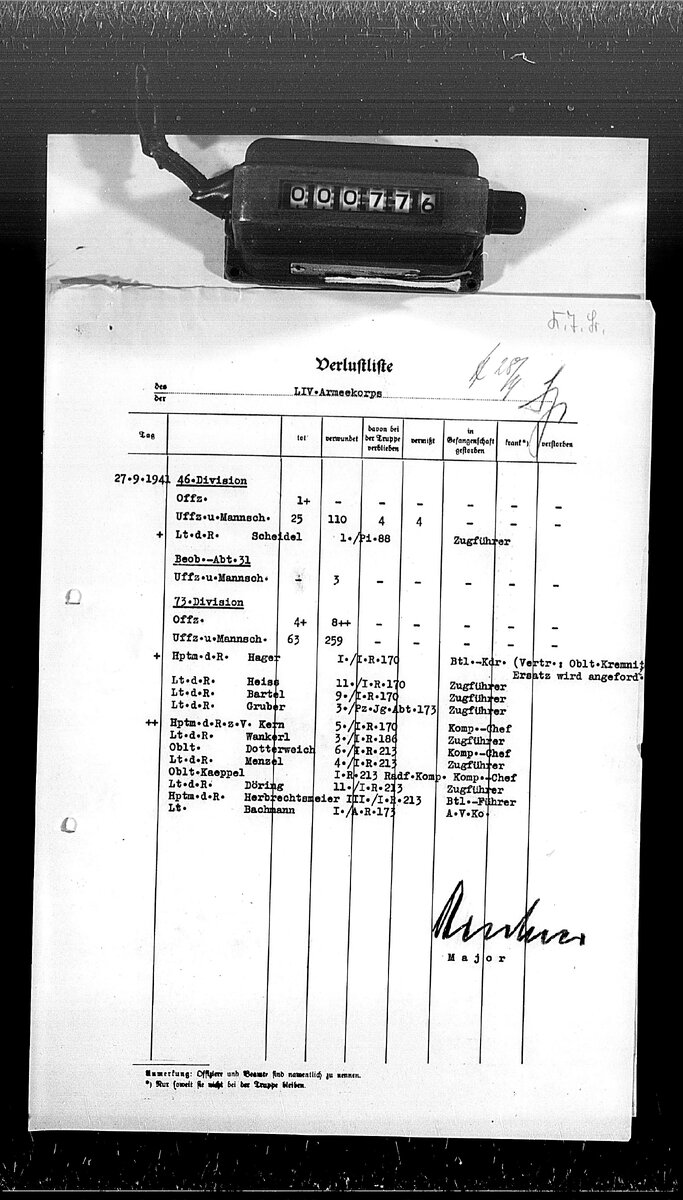 000776
K.T.B.
Verlustliste
28/9
des
der LIV.Armeekorps
Tag tot verwundet davon bei der Truppe verblieben vermißt in Gefangenschaft gestorben krank*) verstorben
27.9.1941 46.Division
Offz. 1+ - - - - - -
Uffz.u.Mannsch. 25 110 4 4 - - -
+ Lt.d.R. Scheidel 1./Pi.88 Zugführer
Beob.-Abt.31
Uffz.u.Mannsch. - 3 - - - - -
73.Division
Offz. 4+ 8++ - - - - -
Uffz.u.Mannsch. 63 259 - - - - -
+ Hptm.d.R. Hager I./I.R.170 Btl.-Kdr. (Vertr.: Oblt.Kremnit
Ersatz wird angeford.
Lt.d.R. Heiss 11./I.R.170 Zugführer
Lt.d.R. Bartel 9./I.R.170 Zugführer
Lt.d.R. Gruber 3./Pz.Jg.Abt.173 Zugführer
++ Hptm.d.R.z.V. Kern 5./I.R.170 Komp.-Chef
Lt.d.R. Wankerl 3./I.R.186 Zugführer
Oblt. Dotterweich 6./I.R.213 Komp.-Chef
Lt.d.R. Menzel 4./I.R.213 Zugführer
Oblt.Kaeppel I.R.213 Radf.Komp. Komp.-Chef
Lt.d.R. Döring 11./I.R.213 Zugführer
Hptm.d.R. Herbrechtsmeier III./I.R.213 Btl.-Führer
Lt. Bachmann I./A.R.173 A.V.Ko.
Major
Anmerkung: Offiziere und Beamte sind namentlich zu nennen.
*) Nur soweit sie nicht bei der Truppe bleiben.